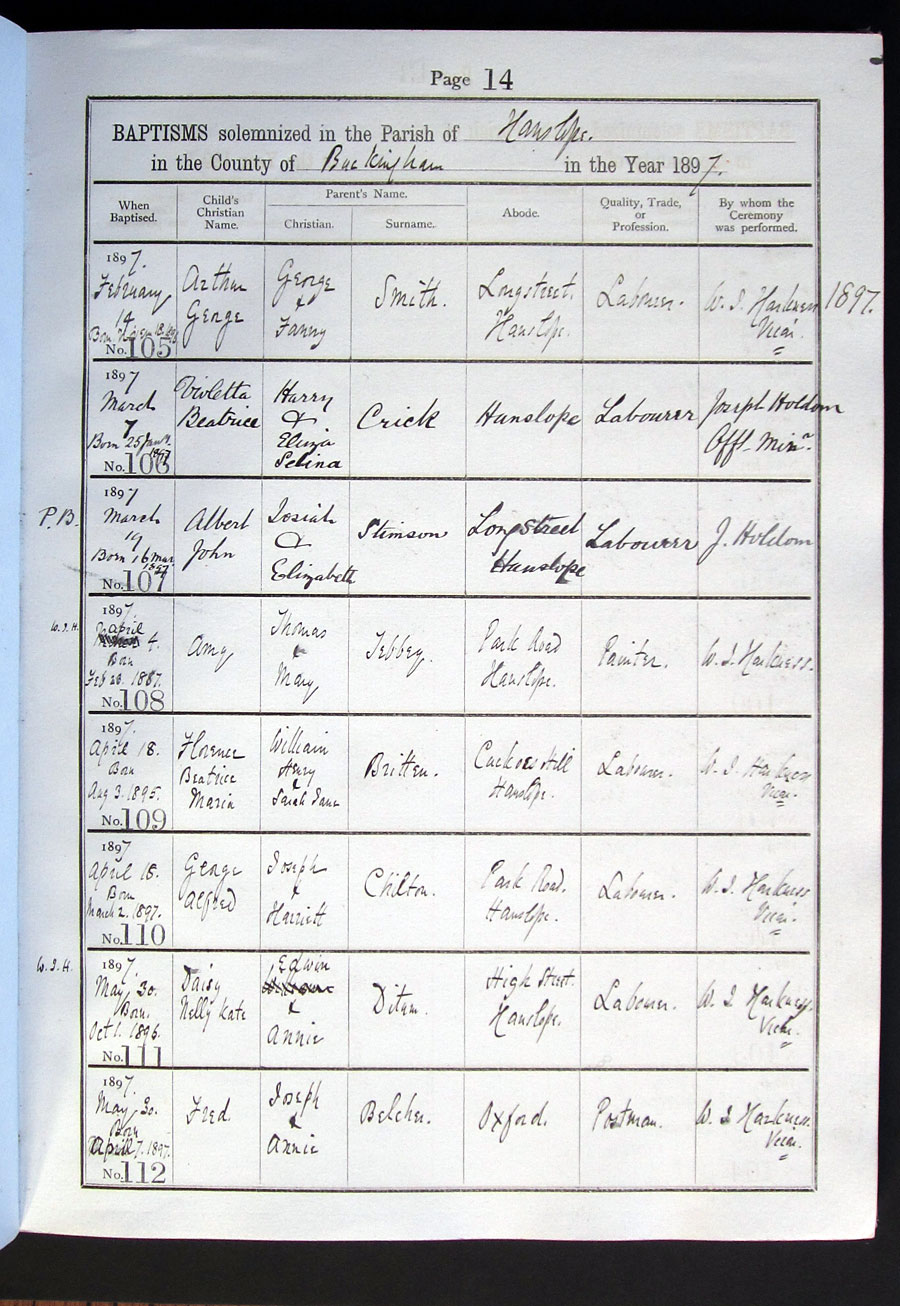 Page 14
BAPTISMS solemnized in the Parish of Hanslope.
in the County of Buckingham in the Year 1897.
When Baptised.
Child's Christian Name.
Parent's Name.
Christian.
Surname.
Abode.
Quality, Trade, or Profession.
By whom the Ceremony was performed.
1897.
February
14
Born
No. 105
Arthur
George
George
&
Fanny
Smith.
Longstreet.
Hanslope.
Labourer.
W. J. Harkness
Vicar.
1897.
1897
March
7
Born 25 Jany.
1897
No. 106
Violetta
Beatrice
Harry
&
Eliza
Selina
Crick
Hanslope
Labourer
Joseph Holdom
Offg. Minr.
P.B.
1897
March
19
Born 16 Mar
1897
No. 107
Albert
John
Josiah
&
Elizabeth
Stimson
Longstreet
Hanslope
Labourer
J. Holdom
W.J.H.
1897.
April
4.
Born
Feb 28. 1887.
No. 108
Amy
Thomas
&
Mary
Tebbey.
Park Road
Hanslope.
Painter.
W. J. Harkness.
1897.
April 18.
Born
Aug 3. 1895.
No. 109
Florence
Beatrice
Maria
William
Henry
&
Sarah Jane
Britten.
Cuckoo Hill
Hanslope.
Labourer.
W. J. Harkness
Vicar.
1897
April 18.
Born
March 2. 1897.
No. 110
George
Alfred
Joseph
&
Harriett
Chilton.
Park Road.
Hanslope.
Labourer.
W. J. Harkness
Vicar.
W.J.H.
1897.
May 30.
Born.
Oct 1. 1896.
No. 111
Daisy
Nelly Kate
Edwin
&
Annie
Ditum.
High Street.
Hanslope.
Labourer.
W. J. Harkness.
Vicar.
1897.
May 30.
Born
April 7. 1897.
No. 112
Fred.
Joseph
&
Annie
Belcher.
Oxford.
Postman.
W. J. Harkness.
Vicar.